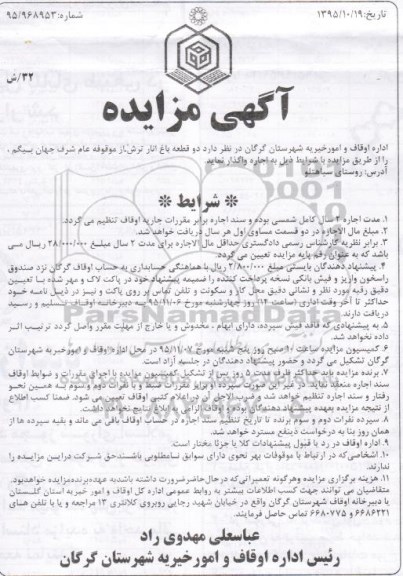 تاریخ: ۱۳۹۵/۱۰/۱۹
شماره: ۹۵/۹۶۸۹۵۳
۳۲/ش
آگهی مزایده
اداره اوقاف و امورخیریه شهرستان گرگان در نظر دارد دو قطعه باغ انار ترش از موقوفه عام شرف جهان بیگم ،
را از طریق مزایده با شرایط ذیل به اجاره واگذار نماید.
آدرس: روستای سیاهتلو
* شرایط *
۱. مدت اجاره ۲ سال کامل شمسی بوده و سند اجاره برابر مقررات جاریه اوقاف تنظیم می گردد.
۲. مبلغ مال الاجاره در دو قسمت مساوی اول هر سال دریافت خواهد شد.
۳. برابر نظریه کارشناس رسمی دادگستری حداقل مال الاجاره برای مدت ۲ سال مبلغ ۲۸/۰۰۰/۰۰۰ ریال می
باشد که به عنوان رقم پایه مزایده تعیین می گردد.
۴. پیشنهاد دهندگان بایستی مبلغ ۲/۸۰۰/۰۰۰ ریال با هماهنگی حسابداری به حساب اوقاف گرگان نزد صندوق
واریز و فیش بانکی نسخه پرداخت کننده را ضمیمه پیشنهاد خود در پاکت لاک و مهر شده با تعیین
دقیق رقبه مورد نظر و نشانی دقیق محل کار و سکونت و تلفن تماس بر روی پاکت و نیز در ذیل نامه خود
حداکثر تا آخر وقت اداری (ساعت ۱۴) روز چهارشنبه مورخ ۹۵/۱۱/۰۶ به دبیرخانه اوقاف تسلیم و رسید
دریافت دارند.
۵. به پیشنهادی که فاقد فیش سپرده، دارای ابهام ، مخدوش و یا خارج از مهلت مقرر واصل گردد ترتیب اثر
داده نخواهد شد.
۶. کمیسیون مزایده ساعت ۱۰ صبح روز پنج شنبه مورخ ۹۵/۱۱/۰۷ در محل اداره اوقاف و امورخیریه شهرستان
گرگان تشکیل می گردد و حضور پیشنهاد دهندگان در جلسه آزاد است.
۷. برنده مزایده باید حداکثر ظرف مدت ۵ روز پس از تشکیل کمیسیون مزایده با اجرای مقررات و ضوابط اوقاف
سند اجاره منعقد نماید در غیر این صورت سپرده او برابر مقررات ضبط و با نفرات دوم و سوم به همین نحو
رفتار و سند اجاره تنظیم خواهد شد و ضرب الاجل در اعلام کتبی اوقاف تعیین می شود. ضمنا کسب اطلاع
از نتیجه مزایده بعهده پیشنهاد دهندگان بوده و اوقاف الزامی به ابلاغ نتیجه نخواهد داشت.
۸. سپرده نفرات دوم و سوم برنده تا تاریخ تنظیم سند اجاره در حساب اوقاف باقی می ماند و بقیه سپرده ها از
همان روز بنا به درخواست ذینفع مسترد خواهد شد.
۹. اداره اوقاف در رد یا قبول پیشنهادات کلا یا جزئا مختار است.
۱۰. اشخاصی که در ارتباط با موقوفات بهر نحوی دارای سوابق نامطلوبی باشند حق شرکت در این مزایده را
ندارند.
۱۱. هزینه برگزاری مزایده و هرگونه تعمیراتی که در حال حاضر ضرورت داشته باشد به عهده برنده مزایده خواهد بود.
متقاضیان می توانند جهت کسب اطلاعات بیشتر به روابط عمومی اداره کل اوقاف و امور خیریه استان گلستان
یا دبیرخانه اوقاف شهرستان گرگان واقع در خیابان شهید رجایی روبروی کلانتری ۱۳ مراجعه و یا با تلفن های
۶۶۸۶۲۲۱ و ۶۶۸۰۷۷۵ تماس حاصل فرمایند.
عباسعلی مهدوی راد
رئیس اداره اوقاف و امورخیریه شهرستان گرگان
ParsNamadData